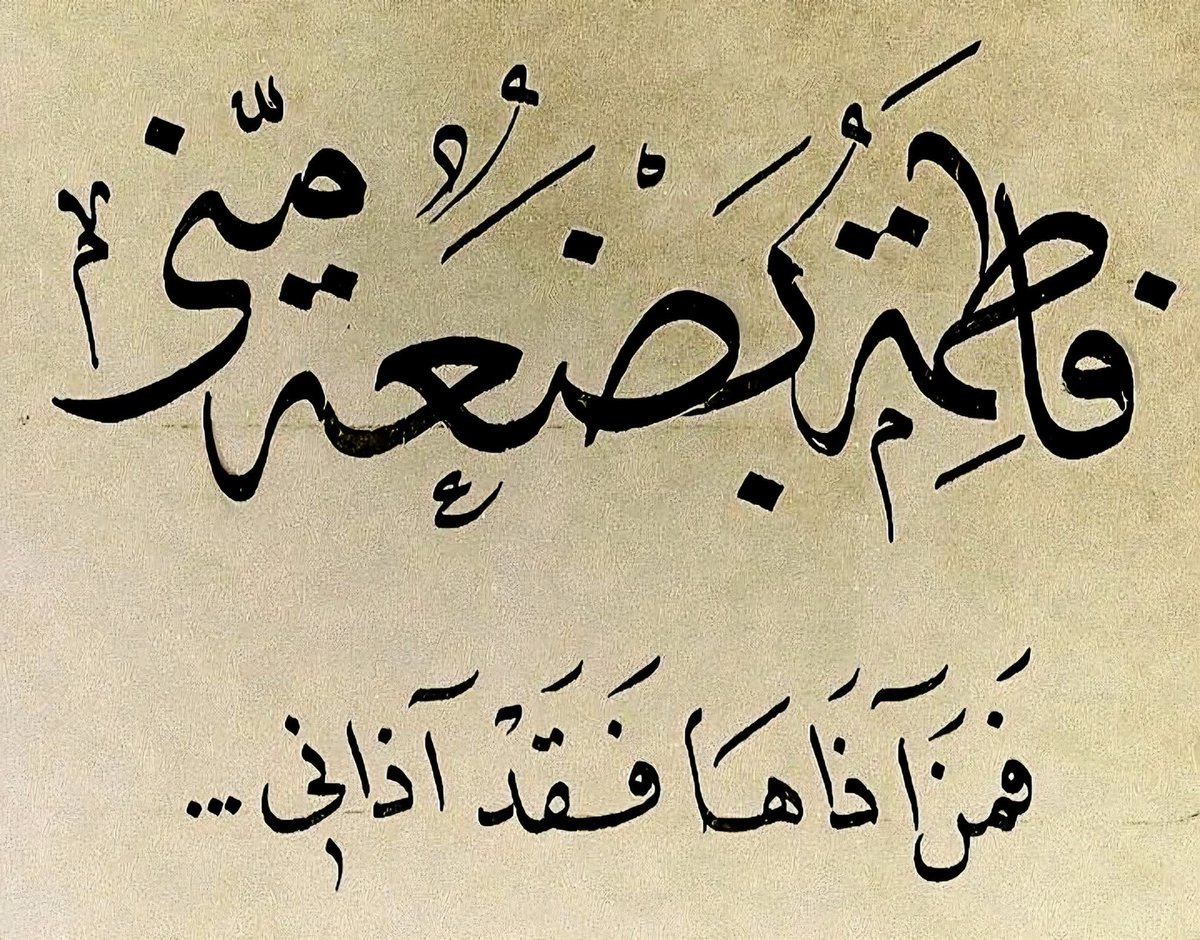 فَاطِمَةُ بَضْعَةٌ مِّنِّي
فَمَنْ آذَاهَا فَقَدْ آذَانِي...